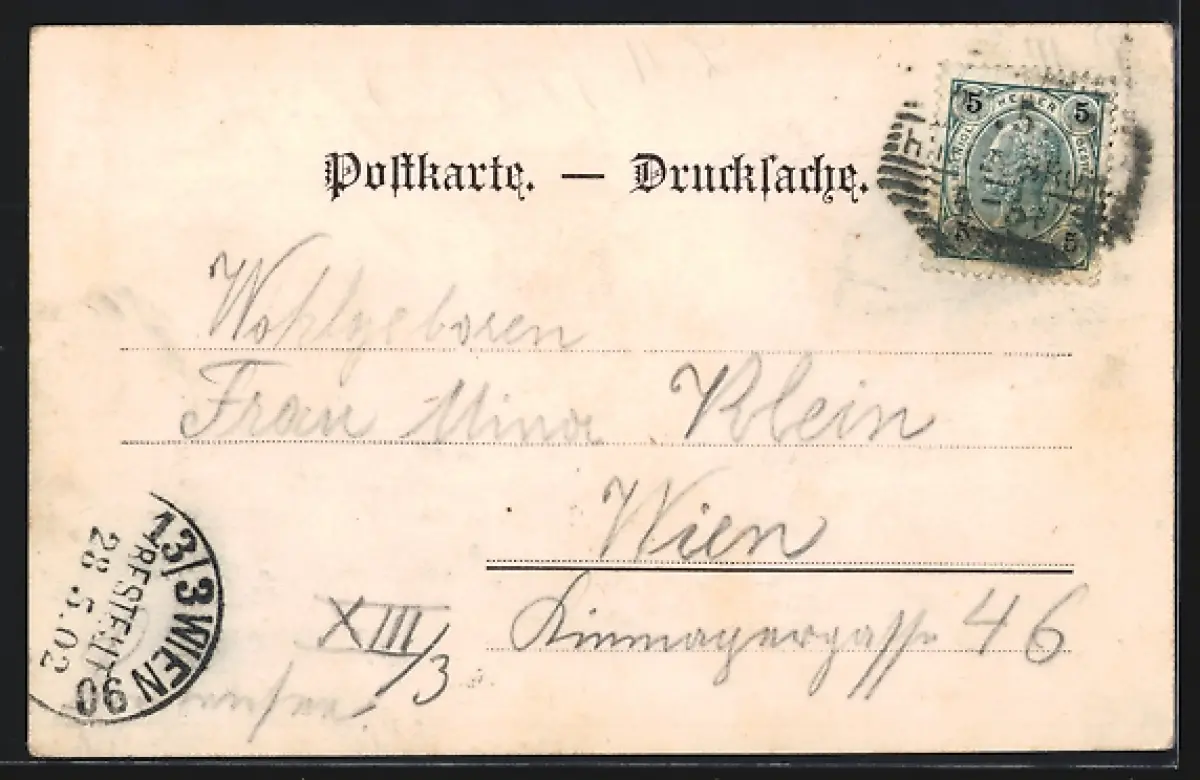 Postkarte. — Drucksache.
5 HELLER 5
5 5
Wohlgeboren
Frau Mina Klein
Wien
XIII/3 Linmayergasse 46
13/3 WIEN 90
BESTELLT
28 5.02